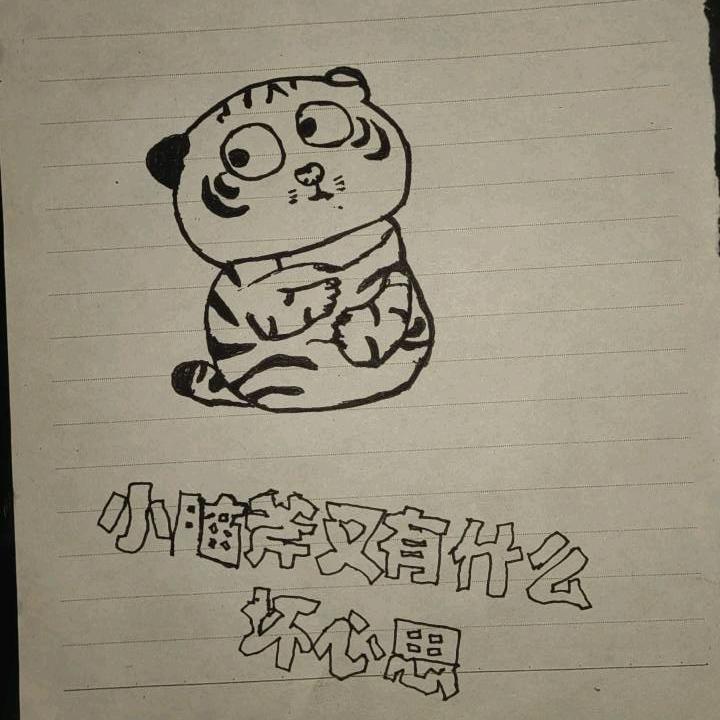 小脑斧又有什么
坏心思